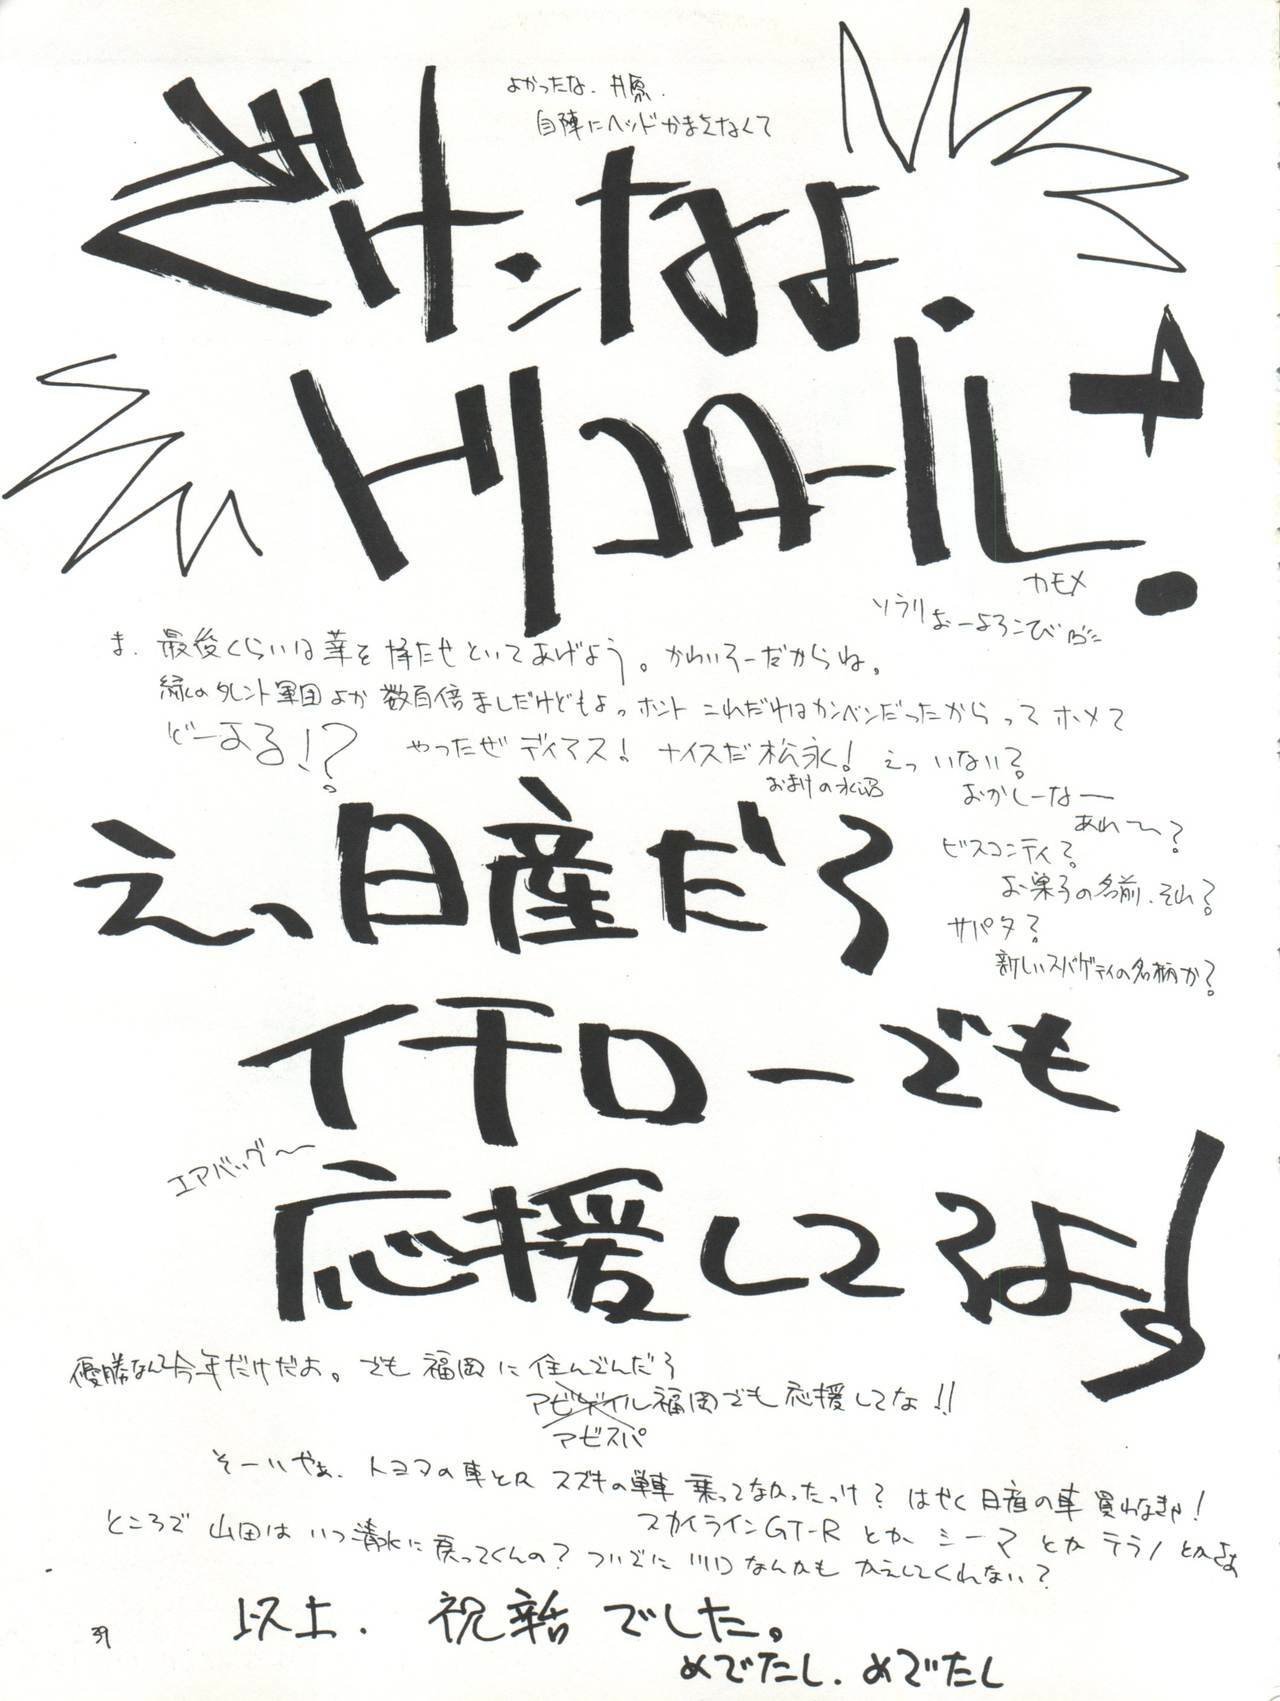 よかったな、井原.
自陣にヘッドかまさなくて
ざけンなよ、
トリコロール!
カモメ
ソラリ
よーよろこび
ま、最後くらいは華を持たせといてあげよう。かわいそーだからね。
緑のタレント軍団よか数百倍ましだけどもよっ ホント これだけはカンベンだったからって ホメて
どーする!?
やったぜ ディアス! ナイスだ 松永! えっ いない?
おまけの水沼
おかしーなー
あれ〜?
えっ、日産だろ
ビスコンティ?
お菓子の名前、それ?
サパタ?
新しいスパゲティの名柄か?
イチローでも
エアバッグ〜
応援してろよ!
優勝なんて今年だけだよ。でも 福岡に 住んでんだろ
アビゲイル福岡でも 応援してな!!
アビスパ
そーいやぁ、トヨタの車とR スズキの単車 乗ってなかったっけ? はやく日産の車 買わなきゃ!
スカイラインGT-R とか、シーマ とか テラノ とかよぉ
ところで 山田は いつ清水に戻ってくんの? ついでに 川口なんかも かえしてくれない?
以上、祝辞でした。
めでたし、めでたし
39